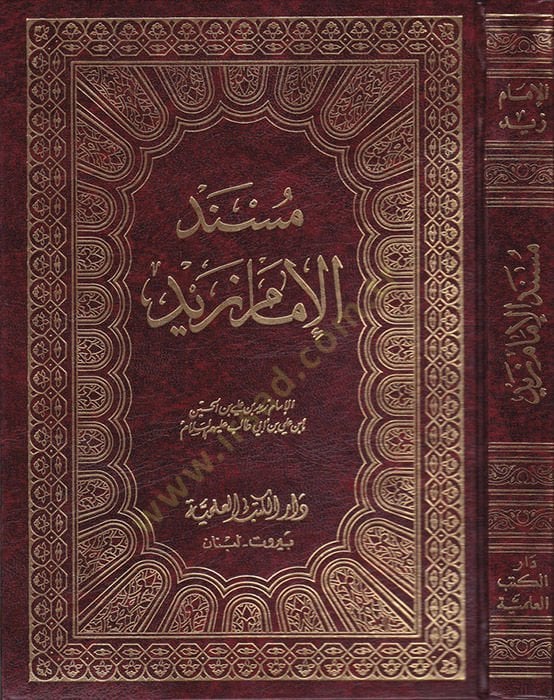 مسند
الإمام زيد
الإمام زيد بن علي بن الحسين
ابن علي بن أبي طالب عليهم السلام
دار الكتب العلمية
بيروت - لبنان
الإمام
زيد
مسند الإمام زيد
دار
الكتب
العلمية